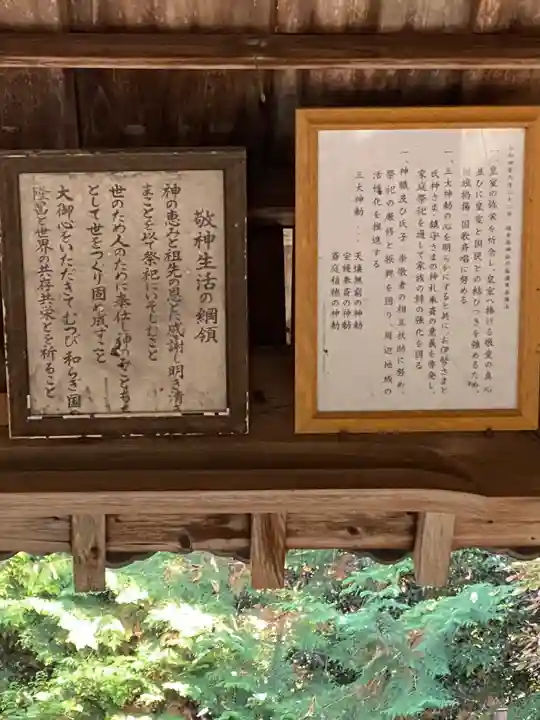 一、皇室の弥栄を祈念し、皇室へ捧げる敬愛の真心
並びに皇室と国民との結びつきを強めるため、
国旗掲揚、国歌斉唱に努める
一、三大神勅の心を明らかにすると共に、お伊勢さまと
氏神さま・鎮守さまの神札奉斎の意義を啓発し、
家庭祭祀を通して家族の絆の強化を図る
一、神職及び氏子・崇敬者の相互扶助に努め、
祭祀の厳修と振興を図り、周辺地域の
活性化を推進する
三大神勅・・・天壌無窮の神勅
宝鏡奉斎の神勅
斎庭稲穂の神勅
敬神生活の綱領
神の恵みと祖先の恩とに感謝し明き清き
まことを以て祭祀にいそしむこと
世のため人のために奉仕し神のみこともち
として世をつくり固め成すこと
大御心をいただきてむつび和らぎ国の
隆昌と世界の共存共栄とを祈ること